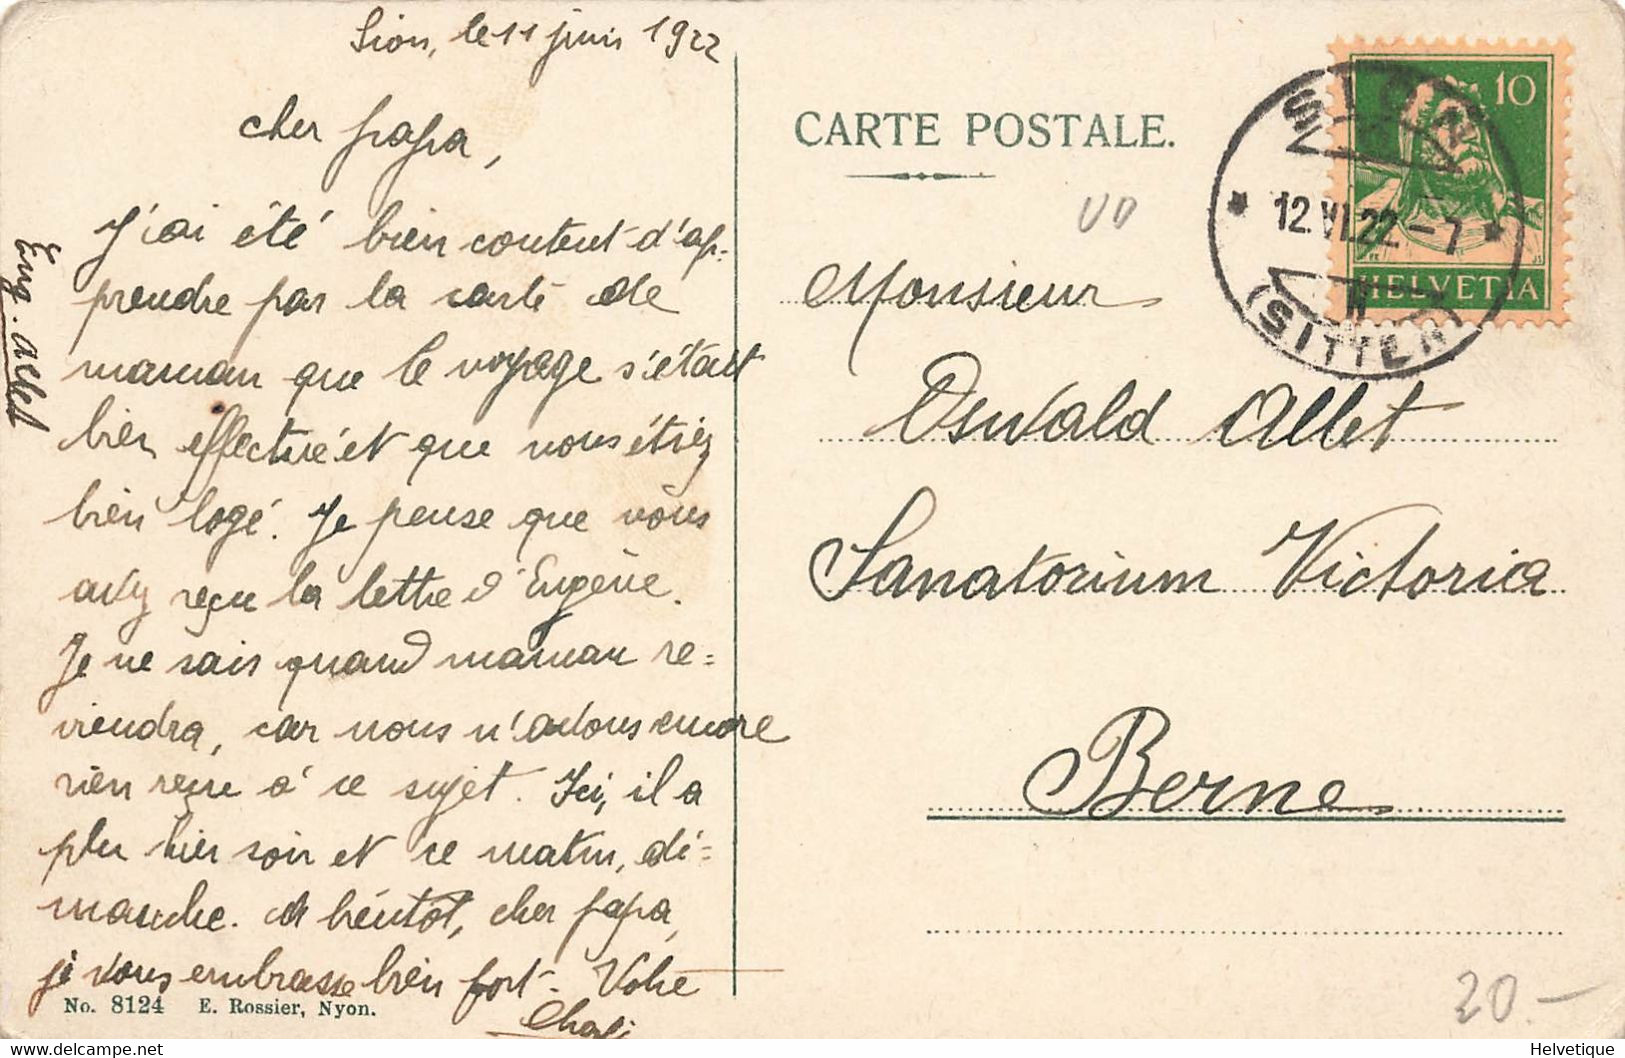 Sion, le 11 juin 1922
cher papa,
J'ai été bien content d'ap-
prendre par la carte de
maman que le voyage s'était
bien effectué et que vous étiez
bien logé. Je pense que vous
avez reçu la lettre d'Eugène.
Je ne sais quand maman re=
viendra, car nous n'avons encore
rien reçu à ce sujet. Ici, il a
plu hier soir et ce matin, di=
manche. A bientôt, cher papa,
je vous embrasse bien fort. Votre
Eug. Allet
No. 8124 E. Rossier, Nyon.
CARTE POSTALE.
10
HELVETIA
SION
12.VI.22-7
(SITTEN)
Monsieur
Oswald Allet
Sanatorium Victoria
Berne
20.-
Helvetique